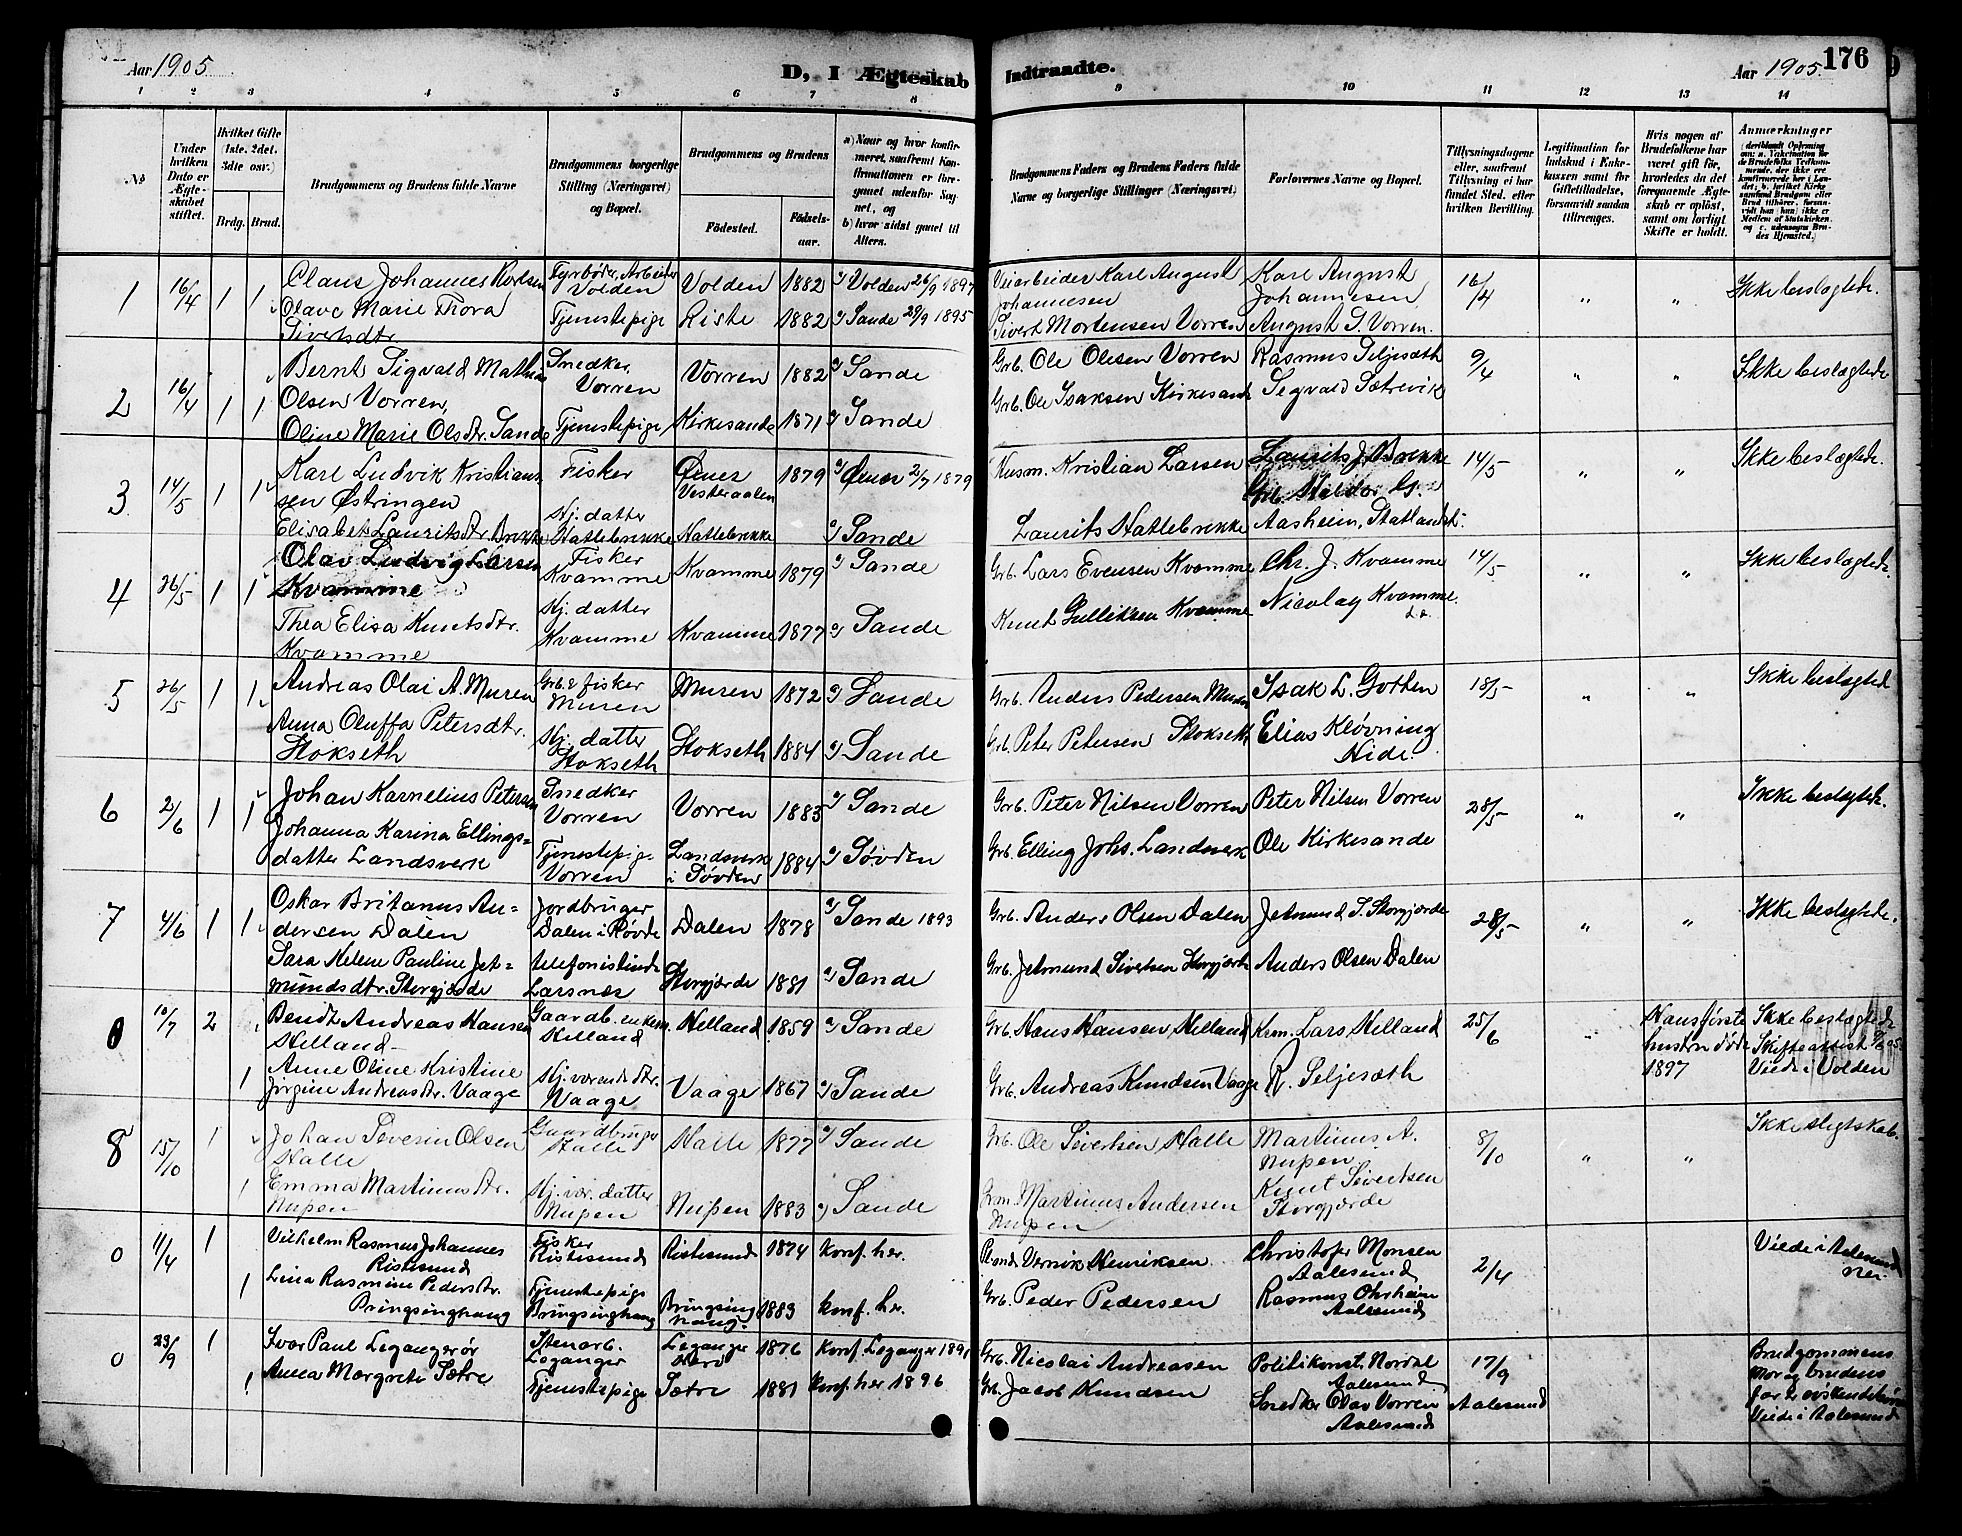 Aar 1905.
D, I Ægteskab Indtraadte.
Aar 1905. 176
1 2 3 4 5 6 7 8 9 10 11 12 13 14
No
Under hvilken Dato er Ægteskabet stiftet.
Hvilket Gifte (1ste, 2det, 3dte osv.)
Brdg. Brud.
Brudgommens og Brudens fulde Navne
Brudgommens borgerlige Stilling (Næringsvei) og Bopæl.
Brudgommens og Brudens
Fødested.
Fødselsaar.
a) Naar og hvor konfirmeret, saafremt Konfirmationen er foregaaet udenfor Sognet, og
b) hvor sidst gaaet til Alters.
Brudgommens Faders og Brudens Faders fulde Navne og borgerlige Stillinger (Næringsvei)
Forlovernes Navne og Bopæl.
Tillysningsdagene eller, saafremt Tillysning ei har fundet Sted, efter hvilken Bevilling.
Legitimation for Indskud i Enkekassen samt for Giftetilladelse, forsaavidt saadan tiltrænges.
Hvis nogen af Brudefolkene har været gift før, hvorledes da det foregaaende Ægteskab er opløst, samt om lovligt Skifte er holdt.
Anmærkninger
1 16/4 1 1 Claus Johannes Karlsen Fyrbøder, Arbeider Volden Volden 1882 a) Volden 26/9 1897 Veiarbeider Karl August Johannesen Karl August Johannesen 16/4 " " Ikke beslægtede.
Olave Marie Thora Sivertsdtr. Tjenestepige Riste 1882 a) Sande 29/9 1895 Sivert Mortensen Vorren August S. Vorren.
2 16/4 1 1 Bernt Sigvald Mathias Olsen Vorren, Snedker, Vorren Vorren 1882 a) Sande Grb. Ole Olesen Vorren Rasmus Seljesæth 9/4 " " Ikke beslægtede
Oline Marie Olsdtr. Sande Tjenestepige Kirkesande 1871 a) Sande Grb. Ole Isaksen Kirkesande Segvald Sætrevik
3 14/5 1 1 Karl Ludvik Kristiansen Østringen Fisker Øines Vesteraalen 1879 a) Øines 2/7 1879 Husm. Kristian Larsen Laurits J. Brekke 14/5 " " Ikke beslægtede.
Elisabet Lauritsdtr. Brekke Hj. datter Hattebrekke Hattebrekke a) Sande Laurits Hattebrekke Grb. Haldor G. Aasheim, Statlandet.
4 26/5 1 1 Olav Ludvig Larsen Kvamme Fisker Kvamme Kvamme 1879 a) Sande Grb. Lars Evensen Kvamme Chr. J. Kvamme 14/5 " " Ikke beslægtede.
Thea Elisa Knutsdtr. Kvamme Hj. datter Kvamme Kvamme 1877 a) Sande Knut Gulliksen Kvamme Nicolay Kvamme.
5 26/5 1 1 Andreas Olai A. Muren Grb. & fisker Muren Muren 1872 a) Sande Grb. Anders Pedersen Muren Isak L. Gothen 18/5 " " Ikke beslægted
Anna Oluffa Petersdtr. Stokseth Hj. datter Stokseth Stokseth 1884 a) Sande Grb. Peter Petersen Stokseth Elias Kløvning Hide.
6 2/6 1 1 Johan Karnelius Petersen Snedker Vorren Vorren 1883 a) Sande Grb. Peter Nilsen Vorren Peter Nilsen Vorren 28/5 " " Ikke beslægtede.
Johanna Karina Ellingsdatter Landsverk Tjenestepige Vorren Landsverk i Søvden 1884 a) Søvden Grb. Elling Johs. Landsverk Ole Kirkesande
7 4/6 1 1 Oskar Britanus Andersen Dalen Jordbruger Dalen i Rovde Dalen 1878 a) Sande 1893 Grb. Anders Olsen Dalen Jetmund S. Storgjærde 28/5 " " Ikke beslægtede.
Sara Helene Pauline Jetmundsdtr. Storgjærde telefonistinde Larsnæs Storgjærde 1881 a) Sande Grb. Jetmund Sivertsen Storgjærde Anders Olsen Dalen
0 10/7 2 Bendt Andreas Hansen Helland Gaardb. enkem. Helland Helland 1859 a) Sande Grb. Hans Hansen Helland Krm. Lars Helland 25/6 " Hans første hustru døde 1897 Ikke beslægtede Skifteattest Viede i Volden
1 Anne Oline Kristine Jørgine Andreasdtr. Vaage Hj. værende dtr. Vaage Vaage 1867 a) Sande Grb. Andreas Knudsen Vaage R. Seljesæth
8 15/10 1 Johan Severin Olsen Halle Gaardbruger Halle Halle 1877 a) Sande Grb. Ole Sivertsen Halle Martinus A. Nupen 8/10 " " Ikke slegtskab.
1 Emma Martinusdtr. Nupen Hj. vær. datter Nupen Nupen 1883 a) Sande Martinus Andersen Nupen Knut Sivertsen Storgjærde
0 11/4 1 Vilhelm Rasmus Johannes Ristesund Fisker Ristesund Ristesund 1874 konf. her. Henriksen Christofer Monsen Aalesund 2/4 Viede i Aalesund nei
1 Lina Rasmine Pedersdtr. Bringsinghaug Tjenestepige Bringsinghaug Bringsinghaug. 1883 konf. her. Grb. Peder Pedersen Rasmus Ohrheim Aalesund
0 23/9 1 Ivar Paul Leganger ør Stenarb. Leganger Leganger Herø 1876 Konf. Leganger 1891 Grb. Nicolai Andreasen Politikonst. Nordal Aalesund. 17/9 Aalesund Brudgommens mor og brudens far er søskendebørn Viede i Aalesund
1 Anna Margrete Sætre Tjenestepige Sætre 1881 konf. her 1896 Grb. Jacob Knudsen Snedker Olav Vorren Aalesund